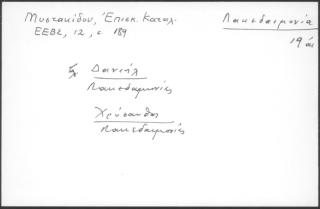 Μυστακίδου, Ἐπισκ. Καταλ.
ΕΕΒΣ, 12, σ 189
Λακεδαιμονία
19 αἰ
Δανιήλ
Λακεδαιμονίας
Χρύσανθος
Λακεδαιμονίας